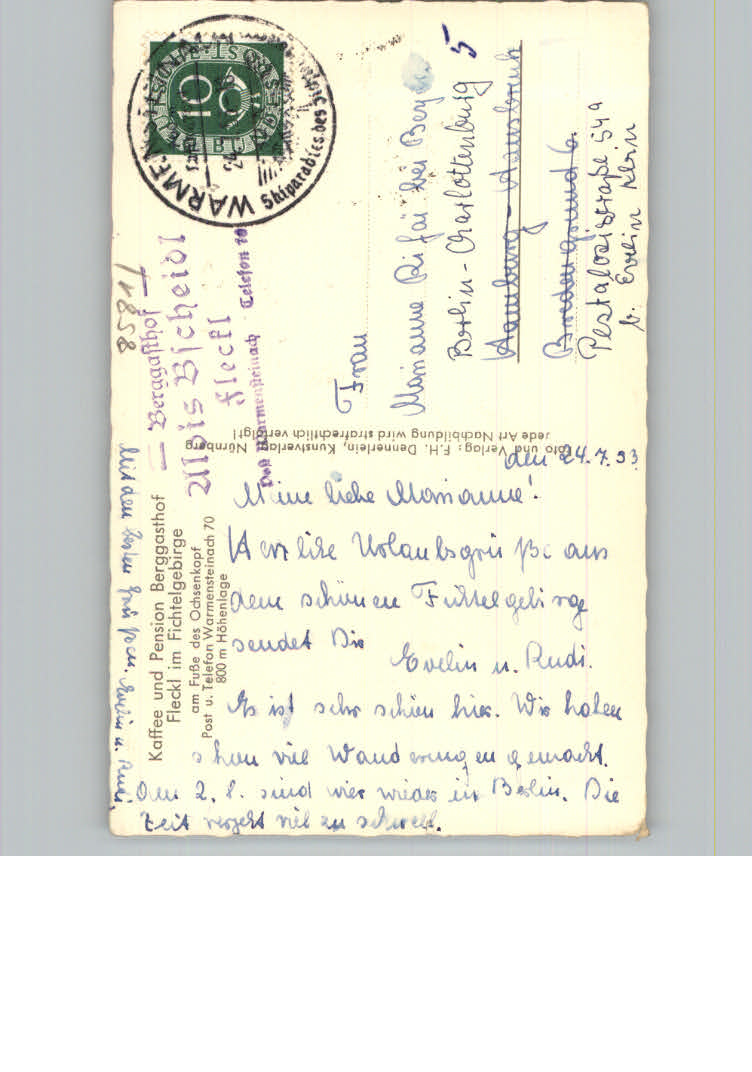 Kaffee und Pension Berggasthof
Fleckl im Fichtelgebirge
am Fuße des Ochsenkopf
Post u. Telefon Warmensteinach 70
800 m Höhenlage
— Berggasthof —
Alois Bscheidl
Fleckl
Post Warmensteinach Telefon 70
T 1858
den 24.7.53
Meine liebe Marianne!
Herzliche Urlaubsgrüße aus
dem schönen Fichtelgebirge
sendet Dir
Evelin u. Rudi.
Es ist sehr schön hier. Wir haben
schon viel Wanderungen gemacht.
Am 2. 8. sind wir wieder in Berlin. Die
Zeit vergeht viel zu schnell.
Mit den besten Grüßen. Evelin u. Rudi.
Foto und Verlag: F.H. Dennerlein, Kunstverlag, Nürnberg
Jede Art Nachbildung wird strafrechtlich verfolgt!
WARMENSTEINACH
Skiparadies des
DEUTSCHE BUNDESPOST
10
Frau
Marianne
Berlin-Charlottenburg 5
Hamburg-
6.
Pestalozzistraße 54a
b. Evelin Klein